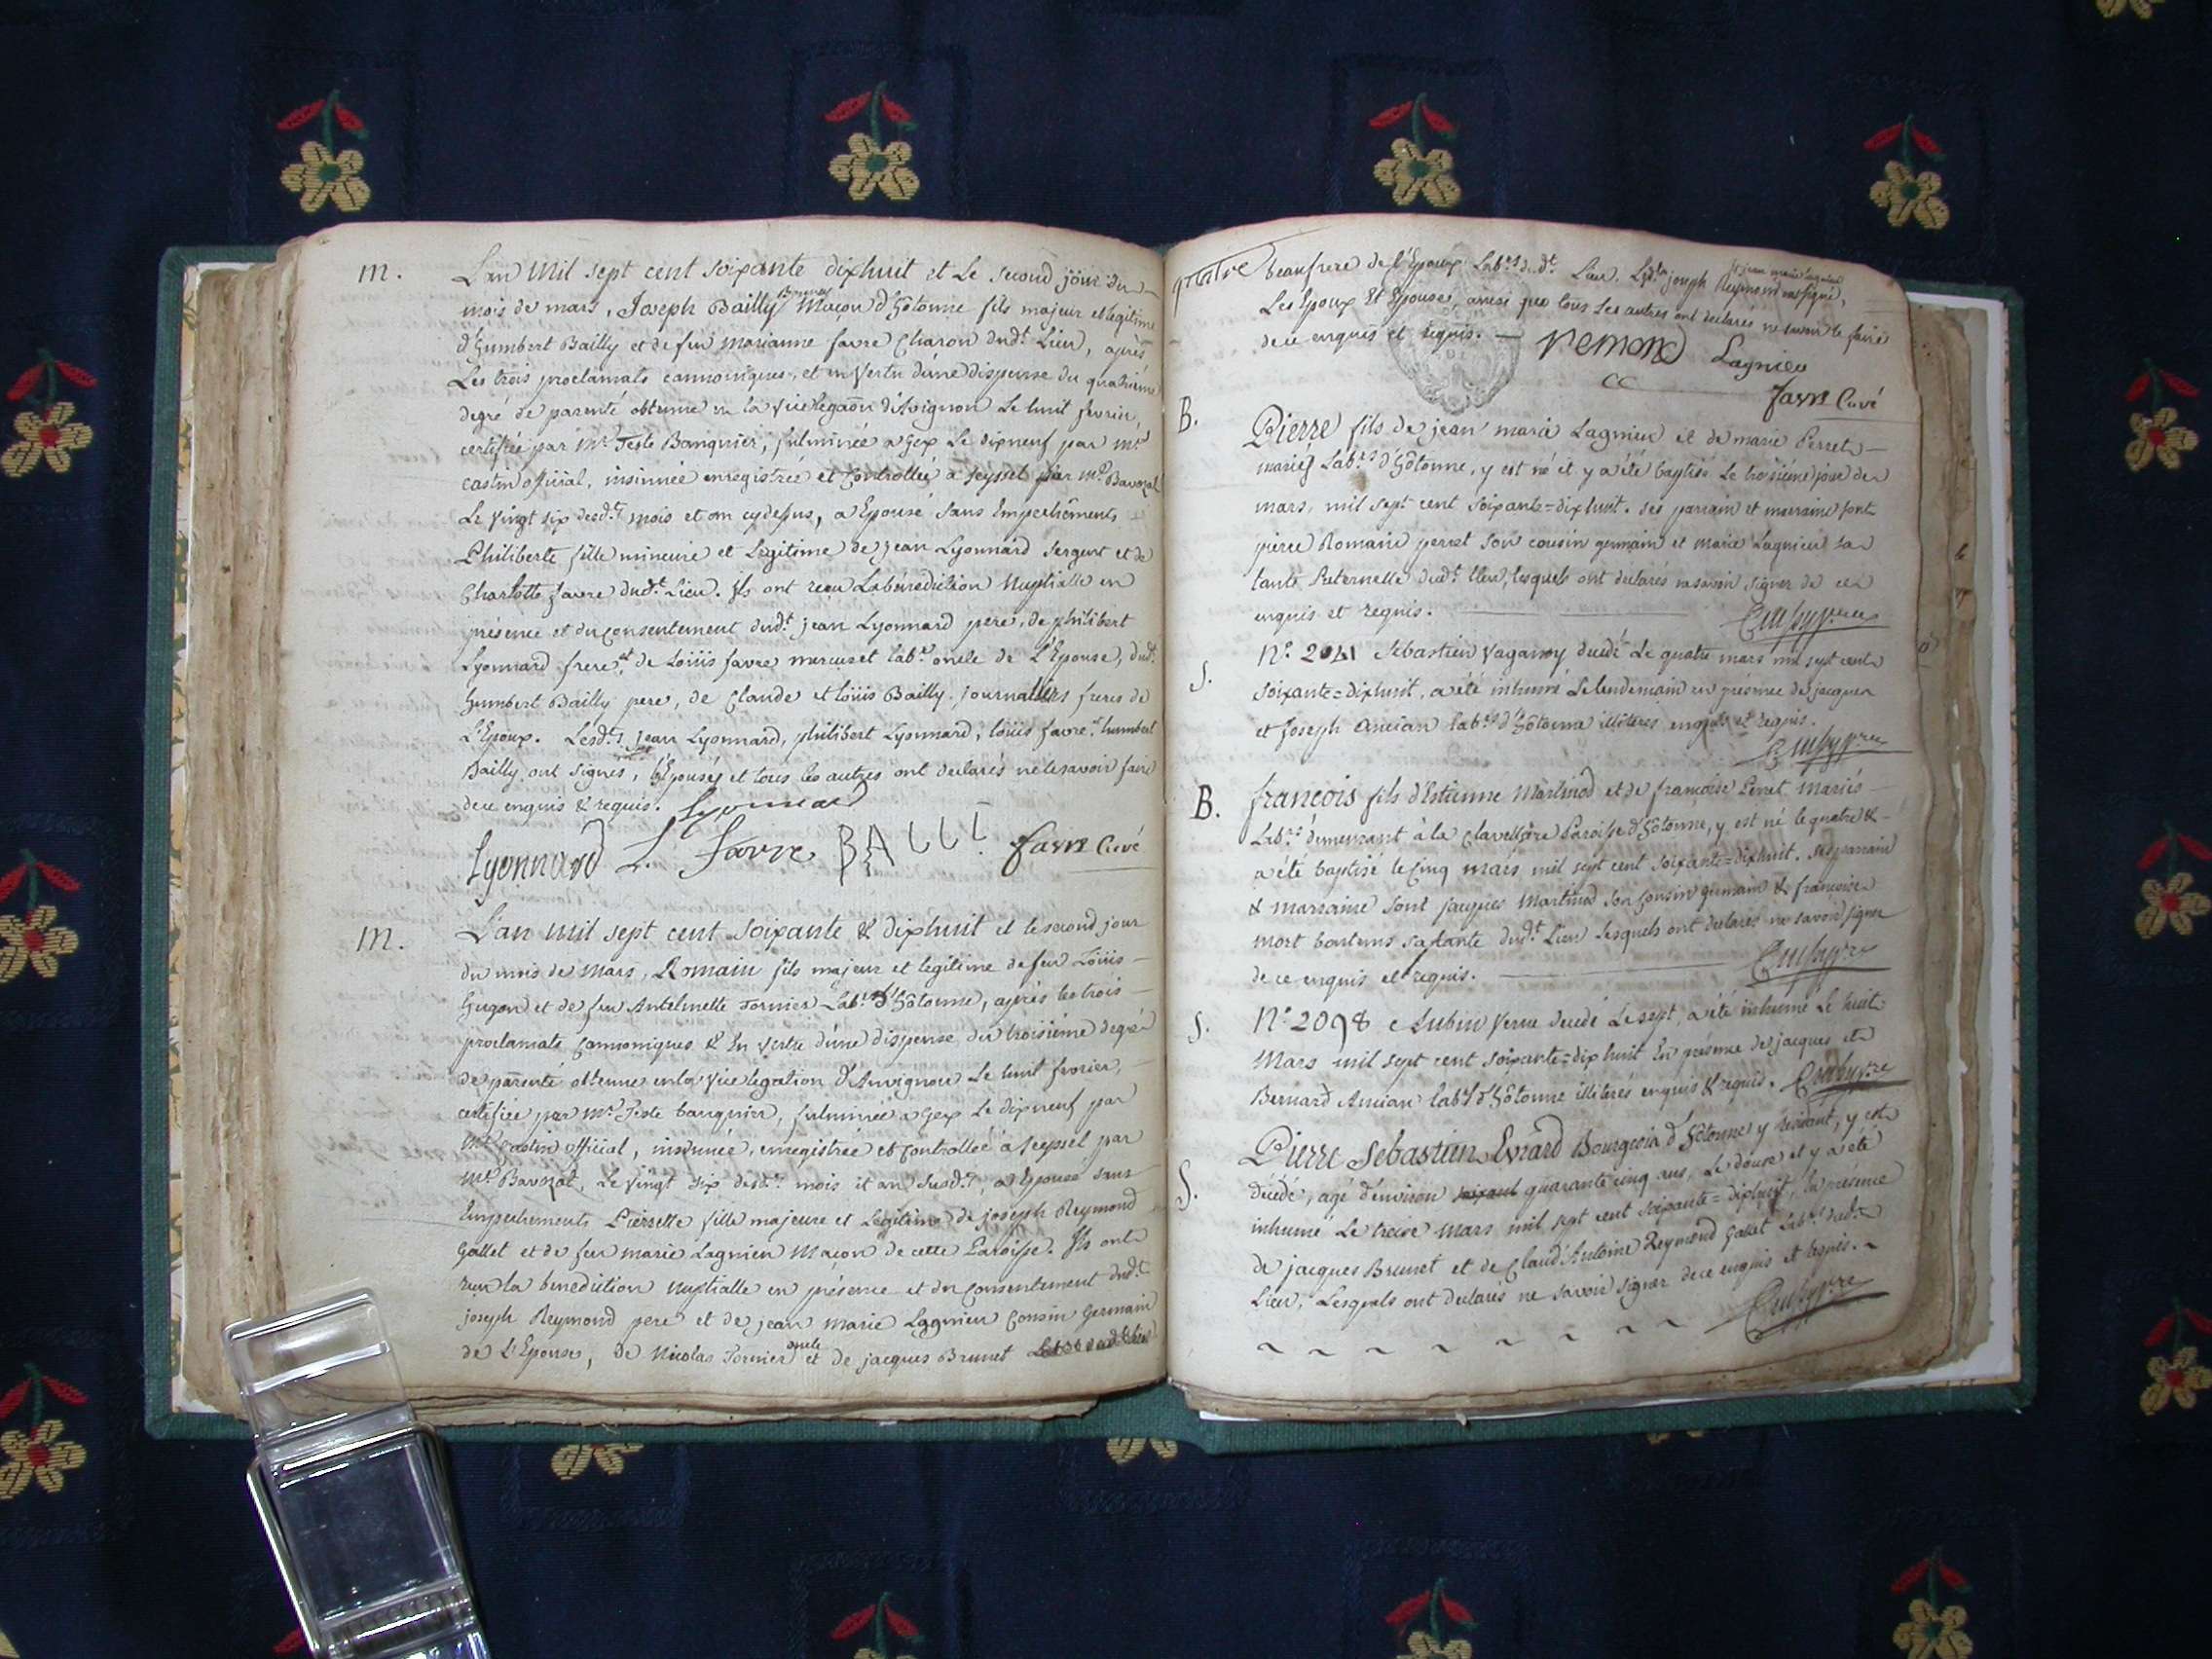 m.
L'an Mil sept cent soixante dixhuit et Le second jour du
mois de mars, Joseph Bailly Maçon d'hôtonne fils majeur et legitime
d'humbert Bailly et de feu marianne favre Charon dudt. Lieu, après
Les trois proclamats cannoniques, et en vertu d'une dispense du quatriéme
degré de parenté obtenue en la vicelegaõn d'Avignon Le huit fevrier,
certifiée par Mr. Teste Banquier, fulminée a Gex Le dixneuf par Mr.
castin official, insinuée enregistrée et Controllée a seyssel par Mr.
Le vingt six desdts. mois et an cydessus, a Epousé sans Empechêments
Philiberte fille mineure et Legitime de jean Lyonnard sergent et de
Charlotte favre dudt. Lieu. Ils ont reçu La bénédiction Nuptialle en
présence et du consentement dudt. jean Lyonnard pere, de philibert
Lyonnard frere, et de Loüis favre labr. oncle de L'Epouse, dudt.
humbert Bailly pere, de Claude et loüis Bailly journaliers freres de
L'Epoux. Lesdts. jean Lyonnard, philibert Lyonnard, loüis favre, et humbert
Bailly ont signés, et tous les autres ont declarés ne le savoir faire
de ce enquis & requis. Lyonnard
Lyonnard L. Favre BAILLI favre Curé
m.
L'an mil sept cent soixante & dixhuit et le second jour
du mois de Mars, Romain fils majeur et legitime de feu Loüis
Gugon et de feu Antelmette Tornier Labrs. d'hôtonne, après les trois
proclamats cannoniques & En vertu d'une dispense du troisiéme degré
de parenté obtenue en la vice legation d'Auvignon Le huit fevrier,
certifiée par Mr. Teste banquier, fulminée a Gex Le dixneuf par
Mr. castin official, insinuée, enregistrée et controllée a seyssel par
Mr. Le vingt six desdts. mois et an susdts., a Epousé sans
Empechements Pierrette fille majeure et Legitime de joseph Reymond
gallet et de feu marie Lagnieu Maçon de cette Paroisse. Ils ont
reçu la benediction Nuptialle en présence et du consentement dudt.
joseph Reymond pere et de jean marie Lagnieu Cousin Germain
de L'Epouse, de Nicolas Tornier oncle et de jacques Brunet
quatre
beaufrere de l'Epoux Labrs. dudt. Lieu. joseph Reymond
et jean marie Lagnieu
Les Epoux Et Epouse, ainsi que tous Les autres ont declarés ne savoir le faire
de ce enquis et requis. — remond Lagnieu
favre Curé
B.
Pierre fils de jean marie Lagnieu et de marie Perret
mariés Labrs. d'hôtonne, y est né et y a été baptisé Le troisieme jour de
mars, mil sept cent soixante=dixhuit. ses parrain et marraine sont
pierre Romain perret son cousin germain et marie Lagnieu sa
tante Paternelle dudt. Lieu, lesquels ont declarés ne savoir signer de ce
enquis et requis.
S.
No. 2041 Sebastien decedé Le quatre mars mil sept cent
soixante=dixhuit, a été inhumé Le lendemain en présence de jacques
et Joseph Ancian labrs. d'hôtonne illiteres enquis et requis.
B.
francois fils d'Estienne Martinod et de francoise Perret mariés
Labrs. demeurant à la Paroisse d'hôtonne, y est né le quatre &
a été baptisé le Cinq mars mil sept cent soixante=dixhuit. ses parrain
& marraine sont jacques Martinod son Cousin germain & francoise
mort sa tante dudt. Lieu Lesquels ont declarés ne savoir signer
de ce enquis et requis.
S.
No. 2098 Aubin decedé Le sept, a été inhumé Le huit
Mars mil sept cent soixante=dixhuit En présence de jacques et
Bernard Ancian labrs. d'hôtonne illiterés enquis & requis.
S.
Pierre Sebastien Evrard Bourgeois d'hôtonne y résidant, y est
décédé, agé d'environ quarante cinq ans, Le douze et y a été
inhumé Le treize Mars mil sept cent soixante=dixhuit, En présence
de jacques Brunet et de Claud'Antoine Reymond Gallet Labrs. dudt.
Lieu, Lesquels ont declarés ne savoir signer de ce enquis et requis.